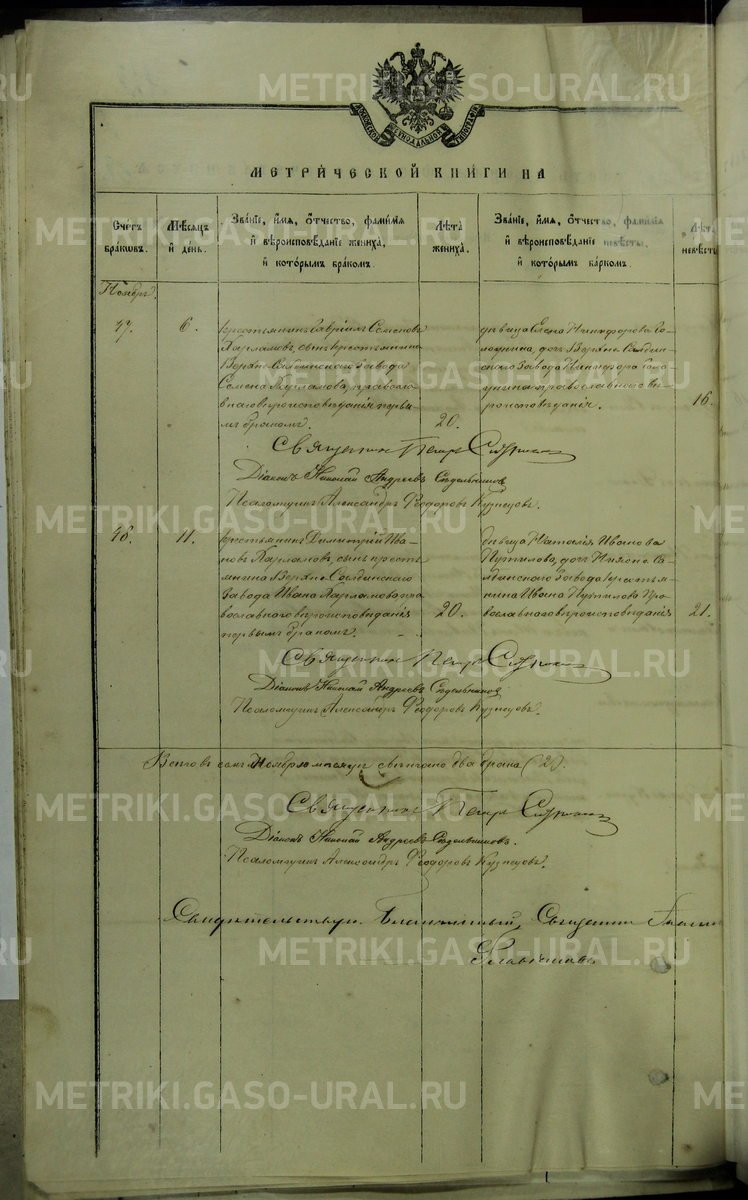 МЕТРИЧЕСКОЙ КНИГИ НА
Счетъ браковъ.
Мѣсяцъ и день.
Званіе, имя, отчество, фамилія и вѣроисповѣданіе жениха, и которымъ бракомъ.
Лѣта жениха.
Званіе, имя, отчество, фамилія и вѣроисповѣданіе невѣсты, и которымъ баркомъ.
Лѣта невѣсты
Ноябрь.
47.
6.
Крестьянинъ Гавріилъ Семеновъ
Харламовъ, сынъ крестьянина
Верхне Салдинскаго Завода
Семена Харламова, правосла-
внаго вѣроисповѣданія первы-
мъ бракомъ.
20.
дѣвица Елена Никифорова
дочь Верхне Салдин-
скаго Завода Никифора
православнаго вѣ-
роисповѣданія.
16.
Священникъ Петръ
Діаконъ Николай Андреевъ Сѣдельниковъ
Псаломщикъ Александръ Ѳеодоровъ Кузнецовъ.
48.
11.
Крестьянинъ Димитрій Ива-
новъ Харламовъ, сынъ кресть-
янина Верхне-Салдинскаго
Завода Ивана Харламова пра-
вославнаго вѣроисповѣданія
первымъ бракомъ.
20.
дѣвица Наталія Иванова
Путилова, дочь Нижне-Са-
лдинскаго Завода крестья-
нина Ивана Путилова Пра-
вославнаго вѣроисповѣданія
21.
Священникъ Петръ
Діаконъ Николай Андреевъ Сѣдельниковъ
Псаломщикъ Александръ Ѳеодоровъ Кузнецовъ.
Всего въ семъ Ноябрѣ мѣсяцѣ свѣнчано два брака (2).
Священникъ Петръ
Діаконъ Николай Андреевъ Сѣдельниковъ.
Псаломщикъ Александръ Ѳеодоровъ Кузнецовъ.
Свидѣтельствую Благочинный, Священникъ
METRIKI.GASO-URAL.RU
METRIKI.GASO-URAL.RU
METRIKI.GASO-URAL.RU
METRIKI.GASO-URAL.RU
METRIKI.GASO-URAL.RU
METRIKI.GASO-URAL.RU
METRIKI.GASO-URAL.RU
METRIKI.GASO-URAL.RU